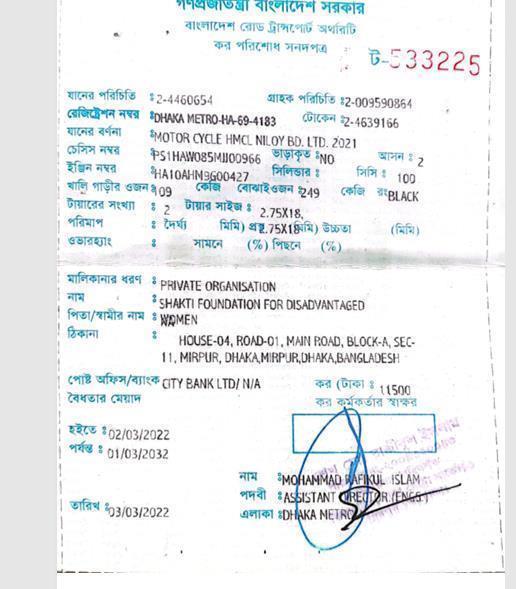 গণপ্রজাতন্ত্রী বাংলাদেশ সরকার
বাংলাদেশ রোড ট্রান্সপোর্ট অথরিটি
কর পরিশোধ সনদপত্র
ট-533225
যানের পরিচিতি : 2-4460654 গ্রাহক পরিচিতি : 2-009590864
রেজিস্ট্রেশন নম্বর : DHAKA METRO-HA-69-4183 টোকেন : 2-4639166
যানের বর্ণনা : MOTOR CYCLE HMCL NILOY BD. LTD. 2021
চেসিস নম্বর : PS1HAW085MJJ00966 ভাড়াকৃত : NO আসন : 2
ইঞ্জিন নম্বর : HA10AHM3G00427 সিলিন্ডার : সিসি : 100
খালি গাড়ীর ওজন : 109 কেজি বোঝাইওজন : 249 কেজি রং BLACK
টায়ারের সংখ্যা : 2 টায়ার সাইজ : 2.75X18,
পরিমাপ : দৈর্ঘ্য (মিমি) প্রস্থ 2.75X18 (মিমি) উচ্চতা (মিমি)
ওভারহ্যাং : সামনে (%) পিছনে (%)
মালিকানার ধরণ : PRIVATE ORGANISATION
নাম : SHAKTI FOUNDATION FOR DISADVANTAGED
পিতা/স্বামীর নাম : WOMEN
ঠিকানা : HOUSE-04, ROAD-01, MAIN ROAD, BLOCK-A, SEC-
11, MIRPUR, DHAKA,MIRPUR,DHAKA,BANGLADESH
পোষ্ট অফিস/ব্যাংক CITY BANK LTD/ N/A কর (টাকা : 11500
বৈধতার মেয়াদ কর কর্মকর্তার স্বাক্ষর
হইতে : 02/03/2022
পর্যন্ত : 01/03/2032
নাম : MOHAMMAD RAFIKUL ISLAM
পদবী : ASSISTANT DIRECTOR (ENGG.)
তারিখ : 03/03/2022 এলাকা : DHAKA METRO